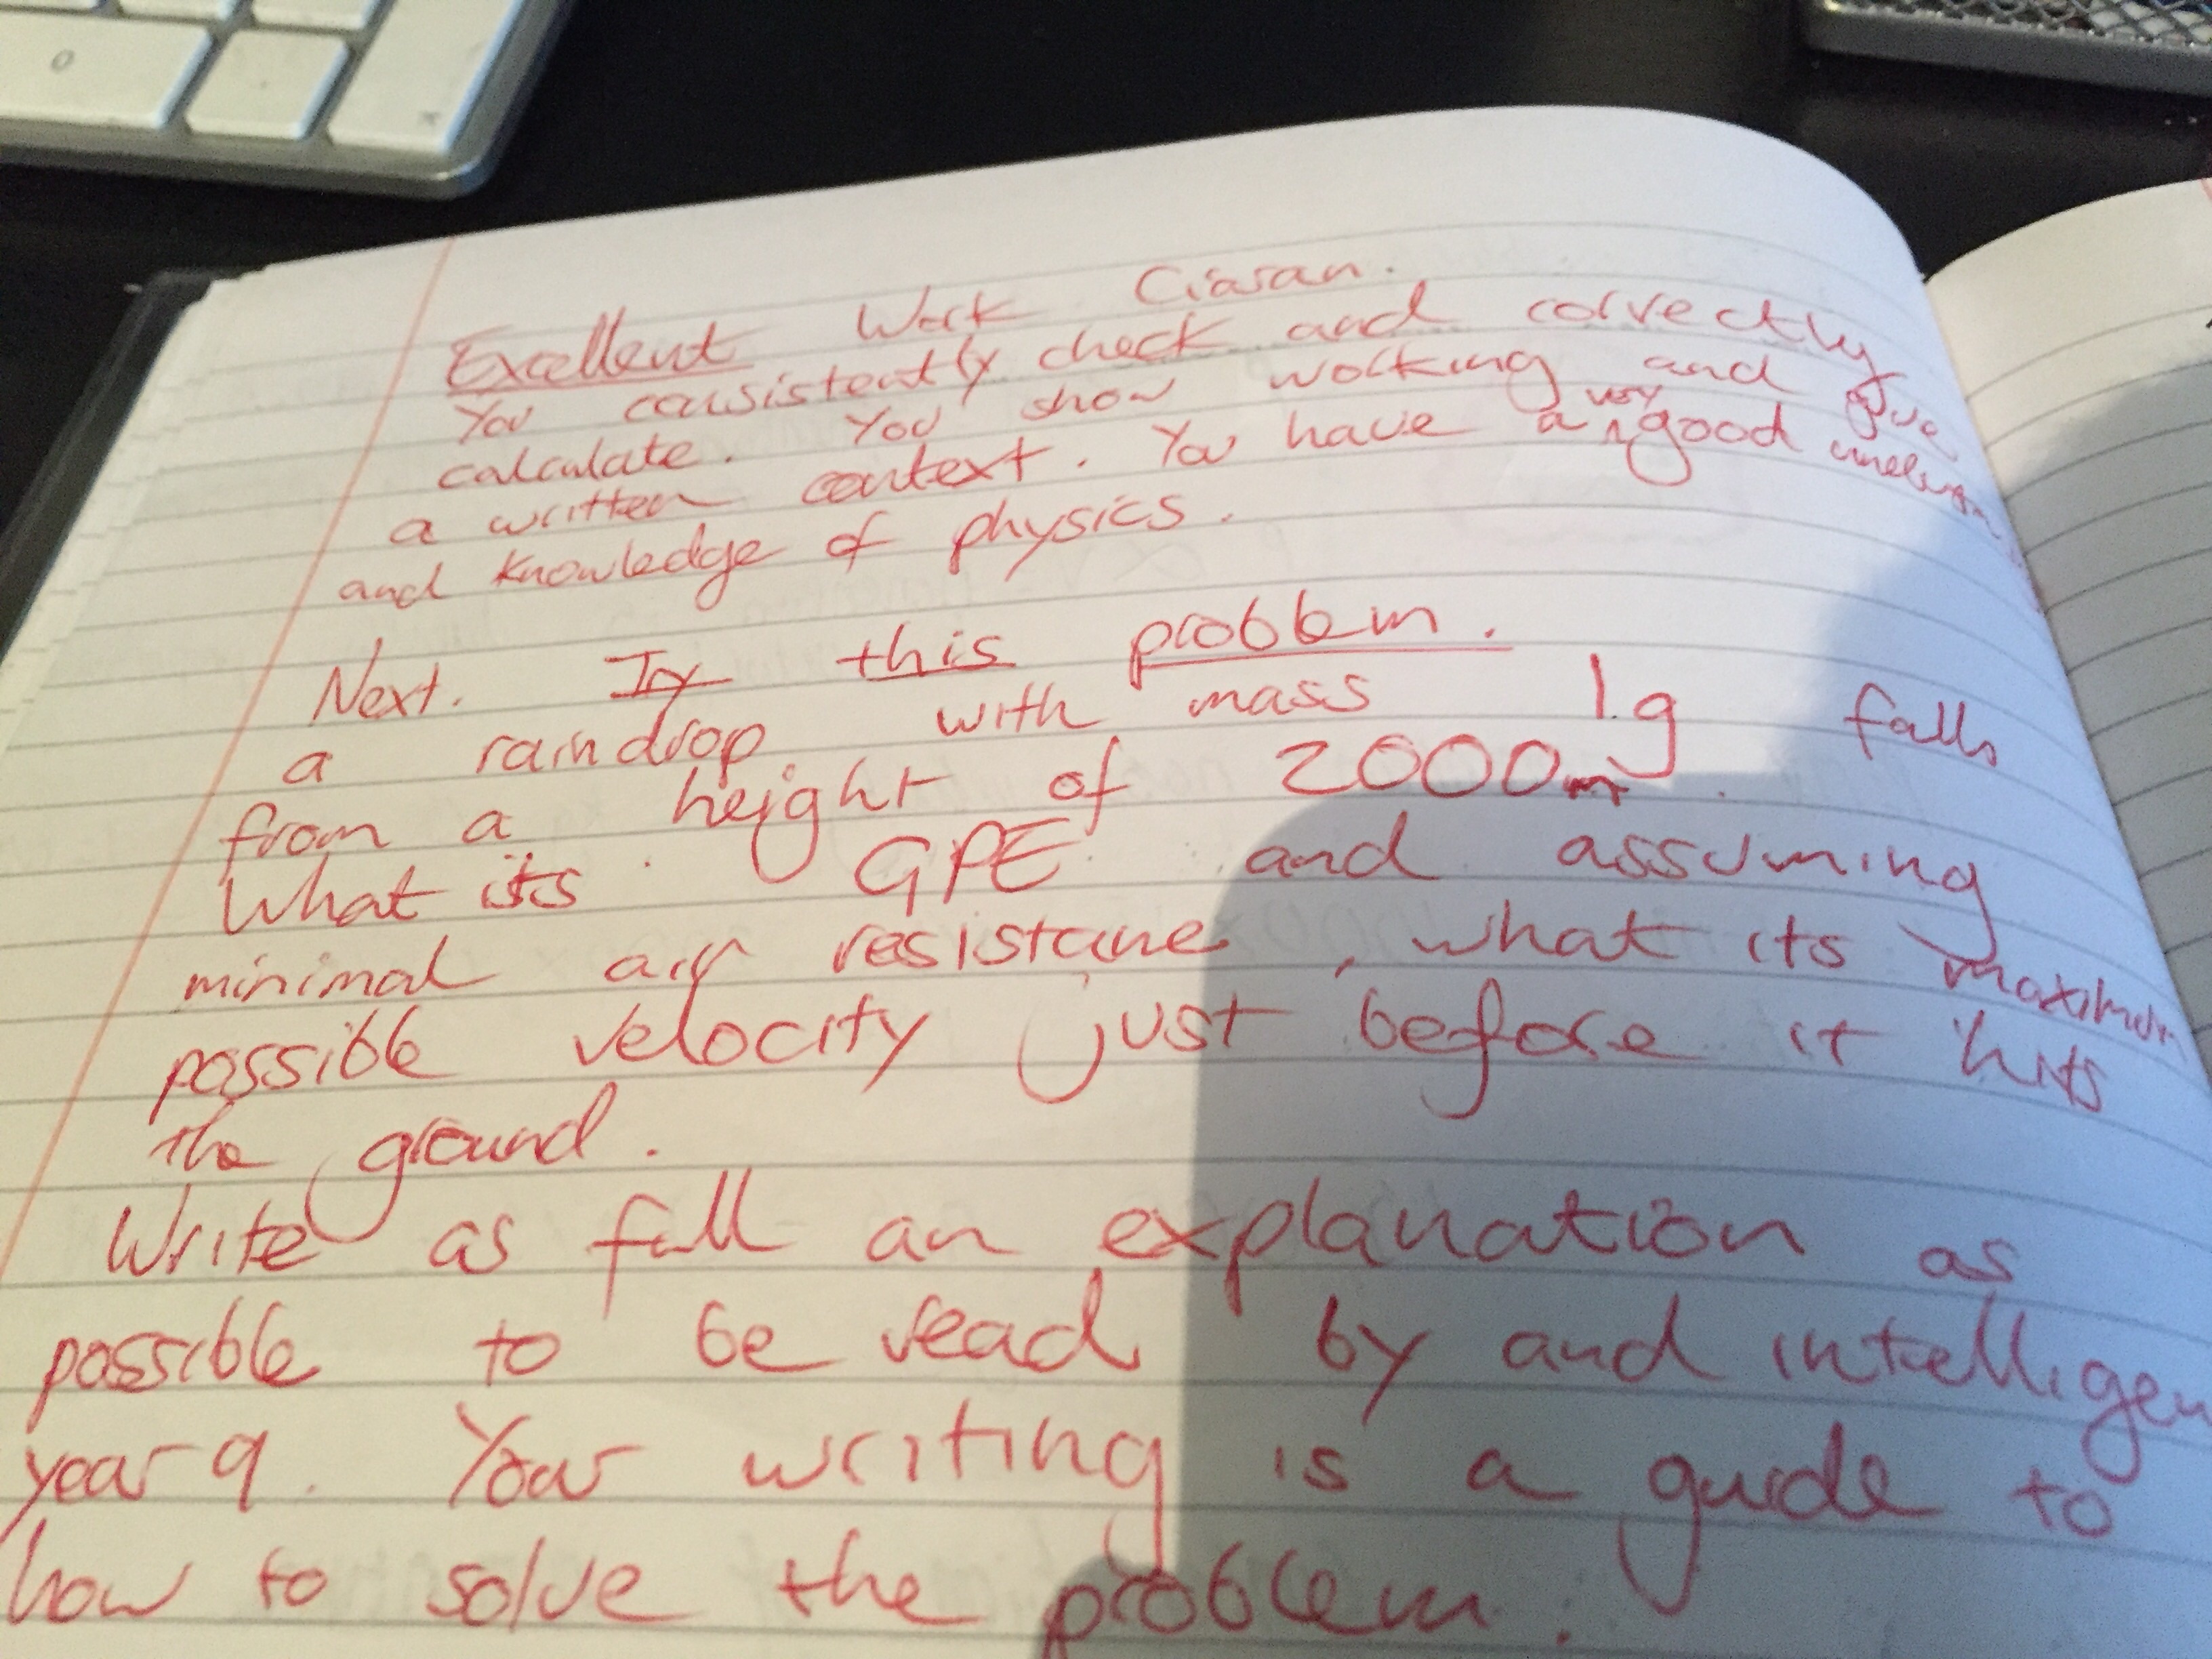 Excellent Work Ciaran.
You consistently check and correctly
calculate. You show working and give
a written context. You have a very good
and knowledge of physics.
Next. Try this problem.
a raindrop with mass 1g falls
from a height of 2000m.
What its GPE and assuming
minimal air resistance, what its maximum
possible velocity just before it hits
the ground.
Write as full an explanation as
possible to be read by and intelligen
year 9. Your writing is a guide to
how to solve the problem.